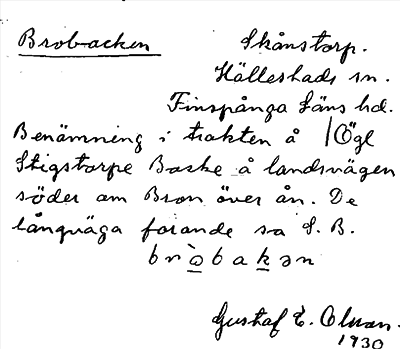 Brobacken
Skånstorp.
Hälleshads sn.
Finspånga Läns hd.
Benämning i trakten å /Ögl
Stigstorps Backe å landsvägen
söder om Bron över ån. De
långväga farande sa S. B.
brò̱bak̠ən
Gustaf E. Olsson.
1930